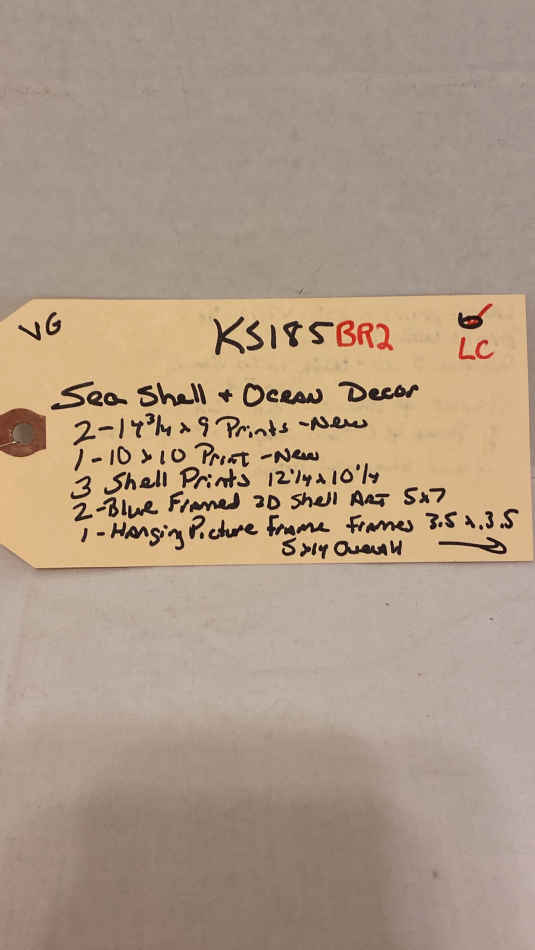 VG KS185 BR2
LC
Sea Shell + Ocean Decor
2-14 3/4 x 9 Prints -New
1-10 x 10 Print -New
3 Shell Prints 12 1/4 x 10 1/4
2-Blue Framed 3D Shell Art 5x7
1-Hanging Picture Frame Frames 3.5 x 3.5
5x14 Overall →